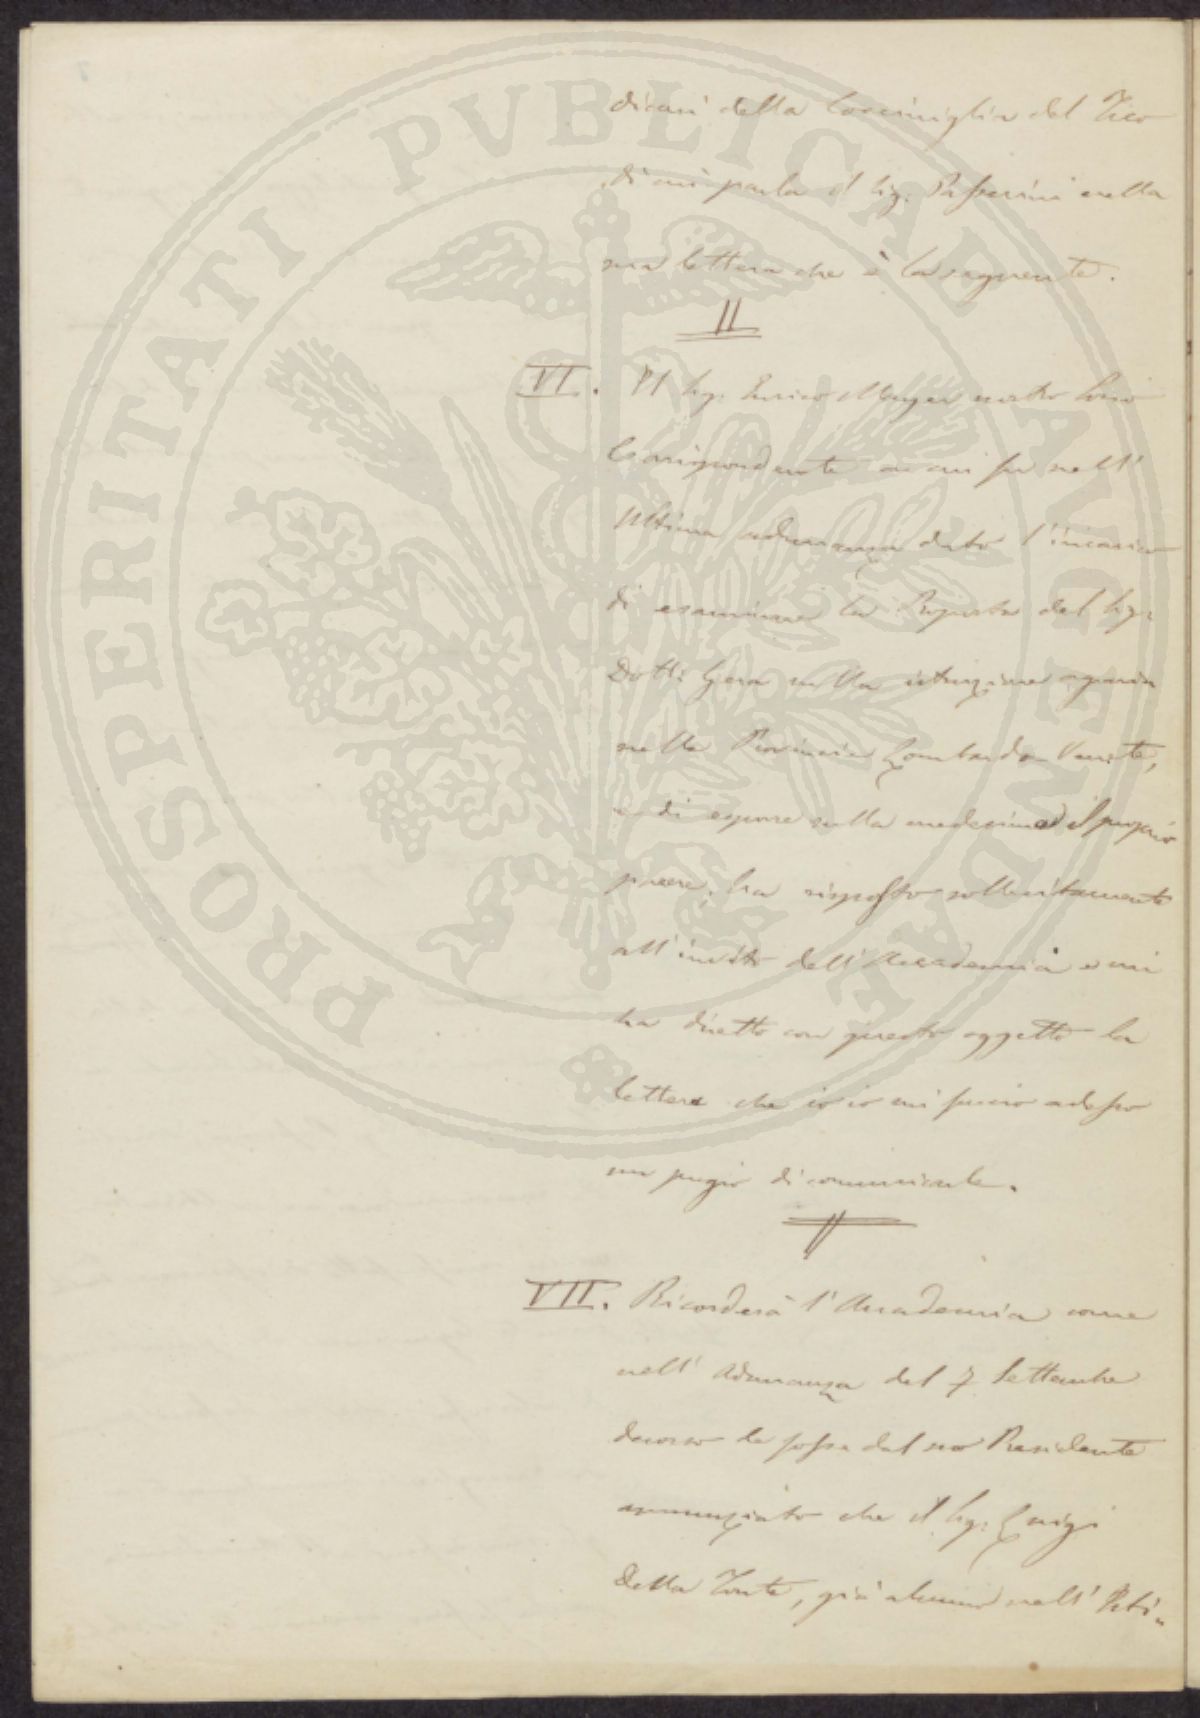 dicasi della Cocciniglia del Fico
di cui parla il Sig. Passerini nella
sua lettera che è la seguente.
VI. Il Sig. Enrico Mayer nostro Socio
Corrispondente a cui fu nell'
ultima adunanza dato l'incarico
di esaminare la Proposta del Sig.
Dott. Gera sulla istruzione agraria
nelle Provincie Lombardo-Venete,
e di esporre sulla medesima il proprio
parere, ha risposto sollecitamente
all'invito dell'Accademia e mi
ha diretto con questo oggetto la
lettera che io io mi faccio adesso
un pregio di comunicarle.
VII. Ricorderà l'Accademia come
nell'adunanza del 7 Settembre
decorso le fosse dal suo Presidente
annunziato che il Sig. Luigi
Della Fonte, già alunno nell'Isti-
PROSPERITATI PVBLICAE AVGENDAE